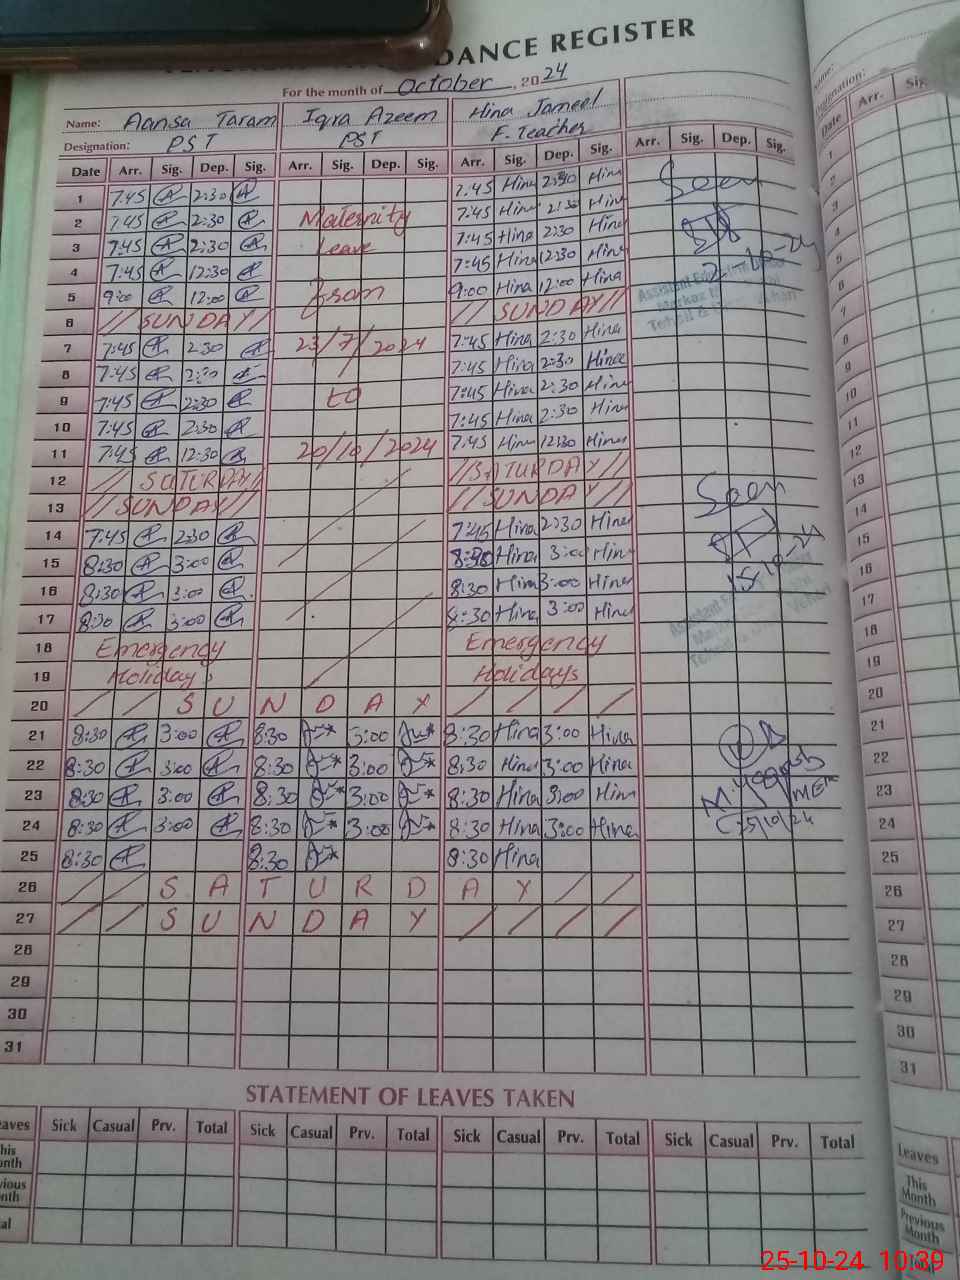 DANCE REGISTER
For the month of October, 2024
Name: Aansa Taram Iqra Azeem Hina Jameel
Designation: PST PST F. Teacher
Date Arr. Sig. Dep. Sig. Arr. Sig. Dep. Sig. Arr. Sig. Dep. Sig. Arr. Sig. Dep. Sig.
1 7:45 2:30 7:45 Hina 2:30 Hina Seen
2 7:45 2:30 Maternity 7:45 Hina 2:30 Hina
3 7:45 2:30 Leave 7:45 Hina 2:30 Hina
4 7:45 12:30 7:45 Hina 12:30 Hina
5 9:00 12:00 from 9:00 Hina 12:00 Hina
6 // SUNDAY // // SUNDAY //
7 7:45 2:30 23/7/2024 7:45 Hina 2:30 Hina
8 7:45 2:30 7:45 Hina 2:30 Hina
9 7:45 2:30 to 7:45 Hina 2:30 Hina
10 7:45 2:30 7:45 Hina 2:30 Hina
11 7:45 12:30 20/10/2024 7:45 Hina 12:30 Hina
12 // SATURDAY // // SATURDAY //
13 // SUNDAY // // SUNDAY // Seen
14 7:45 2:30 7:45 Hina 2:30 Hina
15 8:30 3:00 8:30 Hina 3:00 Hina 15-10-24
16 8:30 3:00 8:30 Hina 3:00 Hina
17 8:30 3:00 8:30 Hina 3:00 Hina
18 Emergency Emergency
19 Holidays Holidays
20 / / S U N D A Y / / / /
21 8:30 3:00 8:30 3:00 8:30 Hina 3:00 Hina
22 8:30 3:00 8:30 3:00 8:30 Hina 3:00 Hina
23 8:30 3:00 8:30 3:00 8:30 Hina 3:00 Hina
24 8:30 3:00 8:30 3:00 8:30 Hina 3:00 Hina
25 8:30 8:30 8:30 Hina
26 / / S A T U R D A Y / /
27 / / S U N D A Y / / / /
28
29
30
31
STATEMENT OF LEAVES TAKEN
Sick Casual Prv. Total Sick Casual Prv. Total Sick Casual Prv. Total Sick Casual Prv. Total
Name:
Designation:
Date Arr.
1
2
3
4
5
6
7
8
9
10
11
12
13
14
15
16
17
18
19
20
21
22
23
24
25
26
27
28
29
30
31
Leaves
This Month
Previous Month
25-10-24 10:39